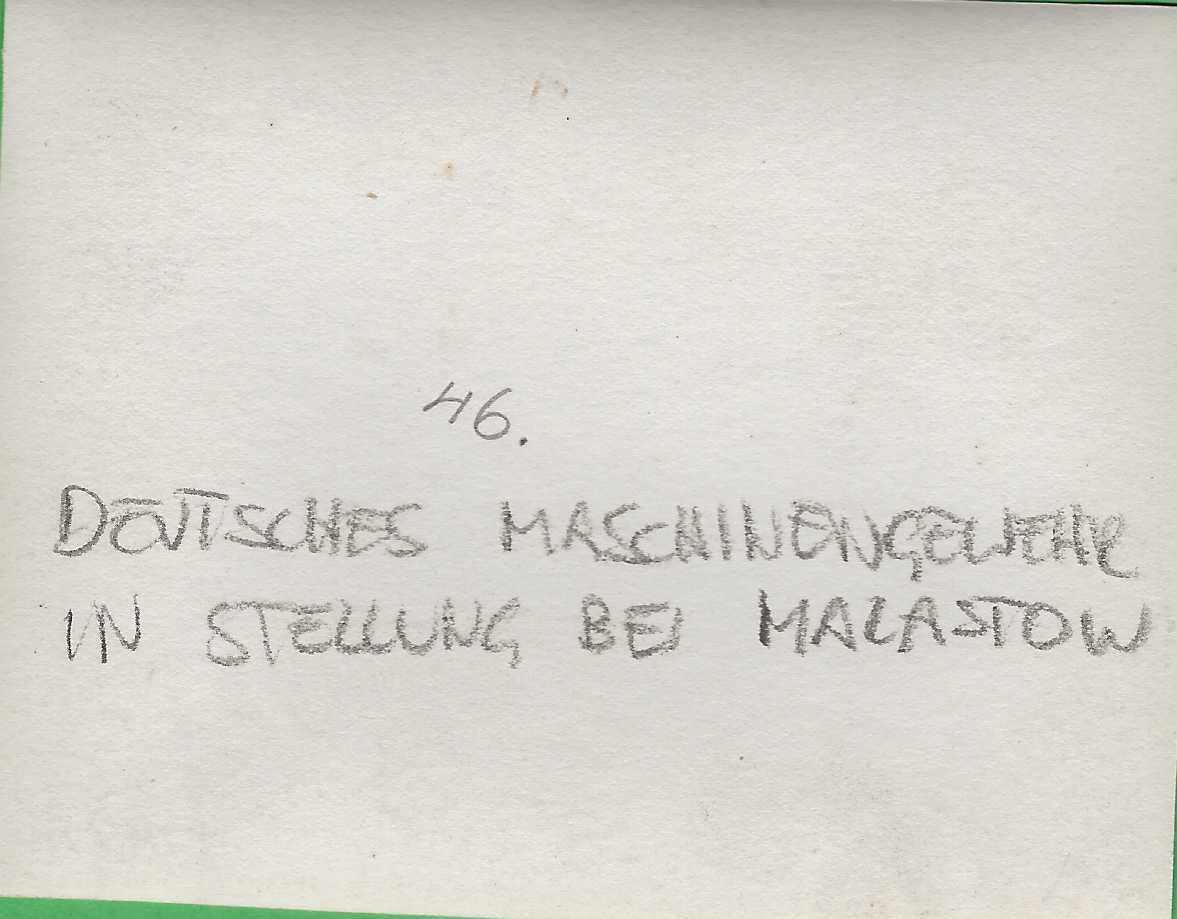 46.
DEUTSCHES MASCHINENGEWEHR
IN STELLUNG BEI MALASTOW